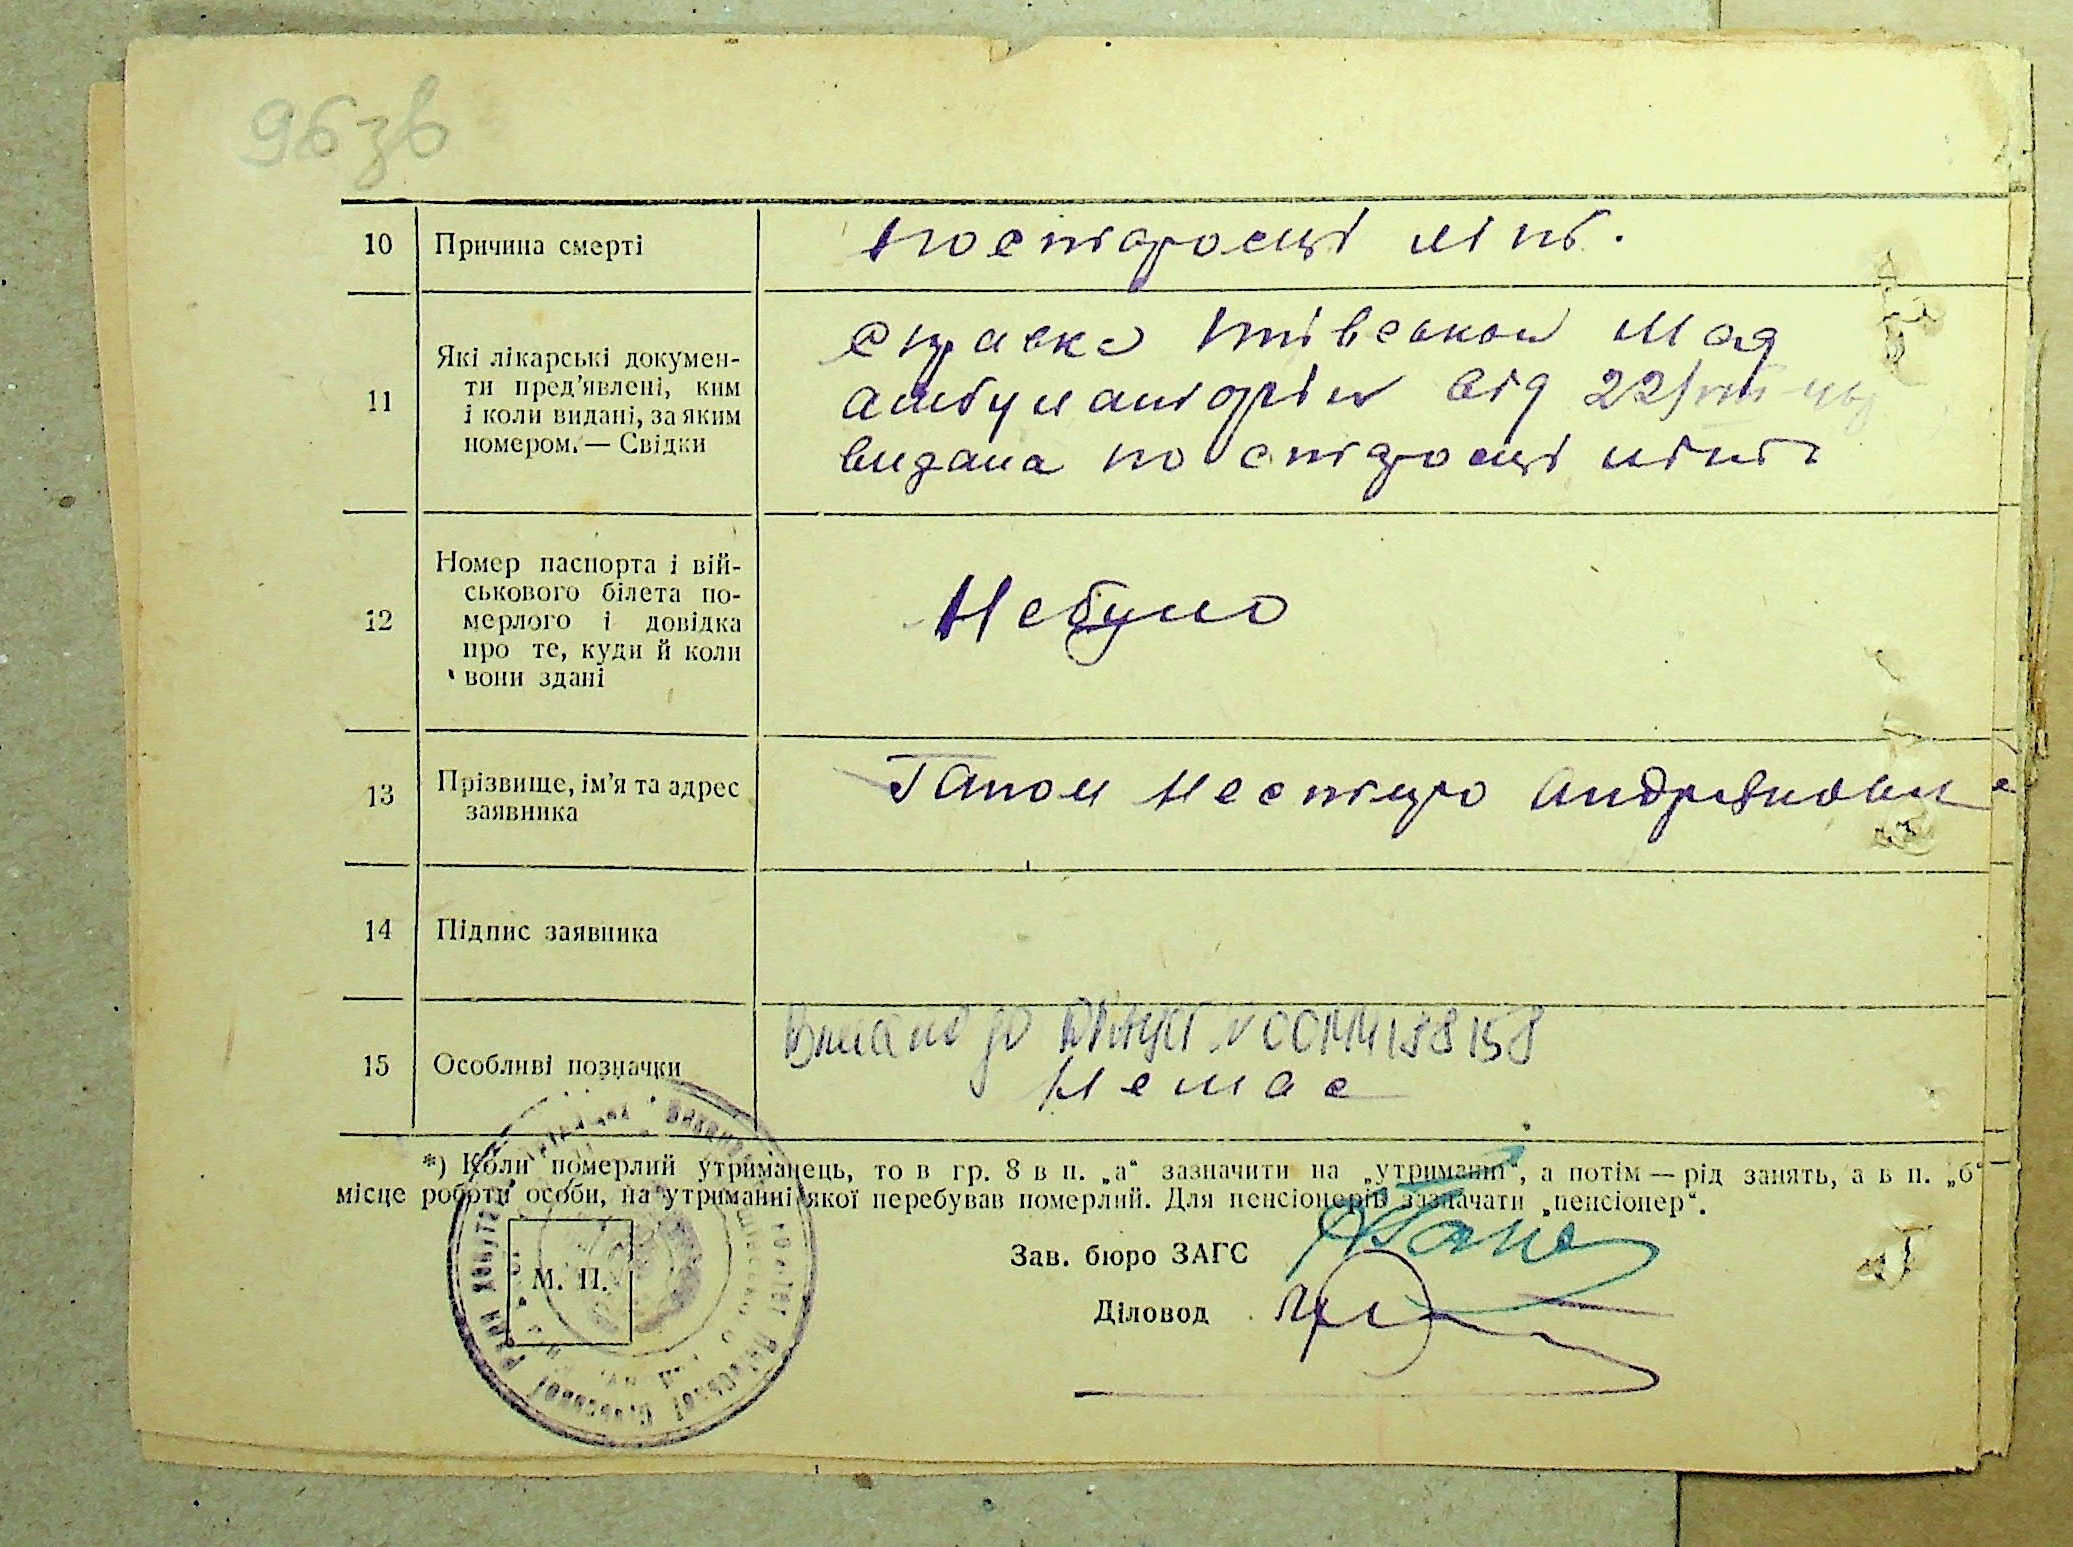 96 зв
10 Причина смерті
по старості літ.
11 Які лікарські докумен-
ти пред’явлені, ким
і коли видані, за яким
номером. — Свідки
справка Мед
амбулаторіи від 22/VIII
видана по старості літ
12 Номер паспорта і вій-
ськового білета по-
мерлого і довідка
про те, куди й коли
вони здані
Небуло
13 Прізвище, ім’я та адрес
заявника
Гапон Нестір
14 Підпис заявника
15 Особливі позначки
до
Немае
*) Коли померлий утриманець, то в гр. 8 в п. „а“ зазначити на „утриманні“, а потім — рід занять, а в п. „б“
місце роботи особи, на утриманні якої перебував померлий. Для пенсіонерів зазначати „пенсіонер“.
М. П.
Зав. бюро ЗАГС
Діловод